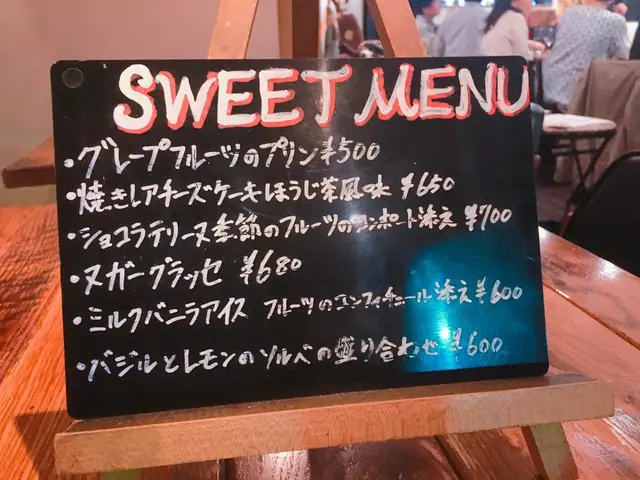 SWEET MENU
・グレープフルーツのプリン ¥500
・焼きレアチーズケーキほうじ茶風味 ¥650
・ショコラテリーヌ季節のフルーツのコンポート添え ¥700
・ヌガーグラッセ ¥680
・ミルクバニラアイス フルーツのコンフィチュール添え ¥600
・バジルとレモンのソルベの盛り合わせ ¥600